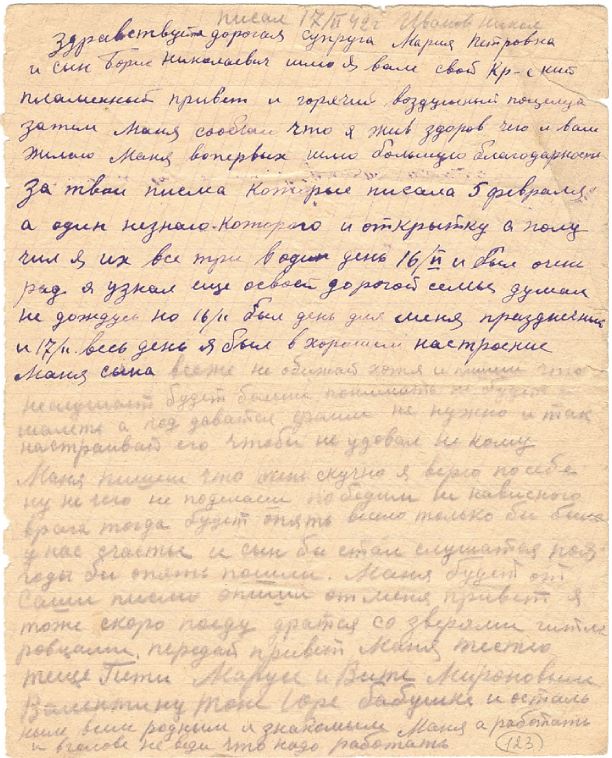 писал 17/II 42г Иванов Никол
Здравствуйте дорогая супруга Мария Петровна
и сын Борис Николаевич шлю я вам свой Кр-ский
пламенный привет и горячий воздушный поцелуй
затем Маня сообщаю что я жив здоров чего и вам
желаю Маня вопервых шлю большую благодарность
за твои писма которые писала 5 февраля
а один незнаю-которого и открытку а полу
чил я их все три водин день 16/II и был очень
рад я узнал еще освоей дорогой семье думал
не дождусь но 16/II был день для меня праздничный
и 17/II. весь день я был в хорошем настроение
Маня сына все же не обижай хотя и пишеш что
неслушает будет больши понимать не будет
шалеть а под даватся врагам не нужно и так
настраивай его чтобы не удовал не кому
Маня пишеш что жить скучно я верю посебе
ну не чего не поделаеш победим не нависного
врага тогда будет опять весело только бы было
у нас счастье и сын бы стал слушатся
годы бы опять пошли. Маня будет от
Саши писмо опиши от меня привет я
тоже скоро поеду дратся со зверями гитле
ровцами. передай привет Маня тестю
теще Пети Марусе и Вите Мироновым
Валентину Тоне Юре бабушке и осталь
ным всем родным и знакомым Маня а работать
и вголове не веди что надо работать
123